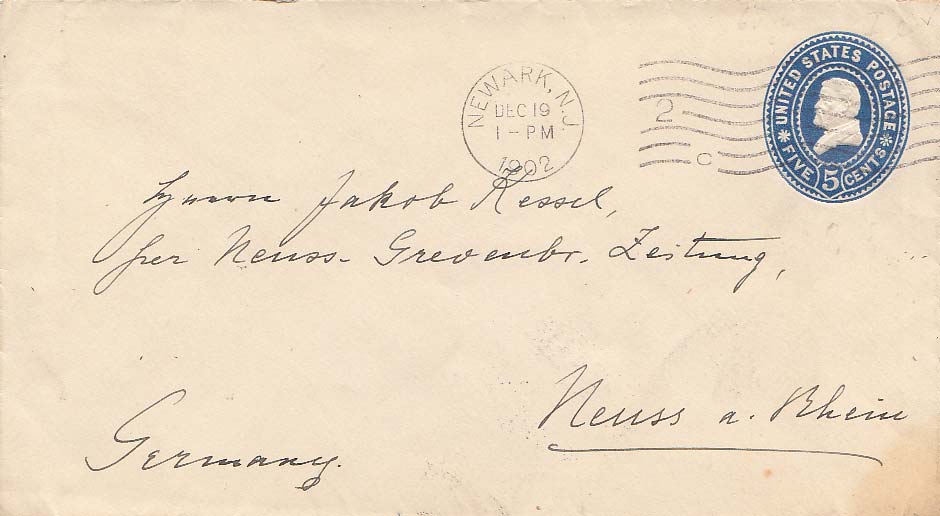 UNITED STATES POSTAGE
FIVE 5 CENTS
NEWARK, N.J.
DEC 19
1 - PM
1902
2
C
Herrn Jakob Kessel,
per Neuss-Grevenbr. Zeitung,
Neuss a. Rhein
Germany.